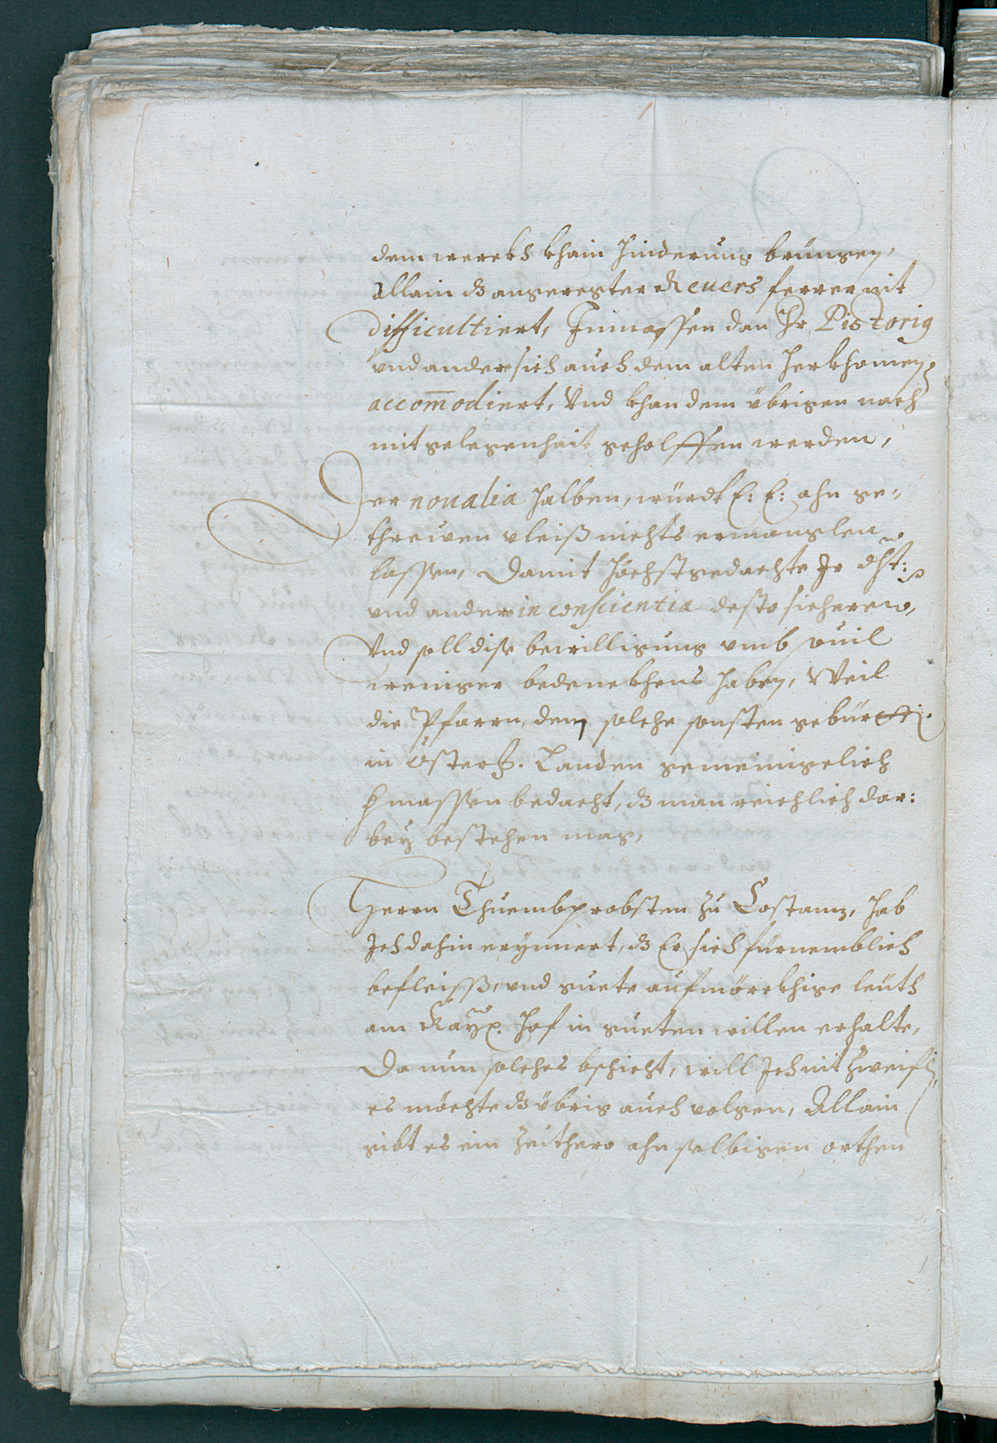 dem werckh khain hinderung bringen,
Allain dz angeregter Reuers ferrer nit
difficultiert, Inmassen dan Hr Pistorig
vnd ander sich auch dem alten herkhomen
accom̄odiert, Vnd khan dem übrigen nach
mit gelegenhait geholffen werden,
Der noualia halben, würdt E: E: ahn ge-
threwen vleiß nichts ermanglen
lassen, Damit höchstgedachte Ir dht:
vnd ander in conscientia desto sicherer,
Vnd soll dise bewilligung vmb souil
weniger bedenckhens haben, Weil
die Pfarrn, den solche sonsten gebür
in Österr. Landen gemeinigelich
massen bedacht, dz man reichlich dar:
bey bestehen mag,
Herrn Thuembprobsten zu Costanz, hab
Ich dahin erynnert, dz Er sich fürnemblich
befleiss, vnd guete aufmörckhige leüth
am Kay. hof in gueten willen erhalte,
Da nun solches bschicht, will Ich nit zweifln,
es möchte dz übrig auch volgen, Allain
gibt es ein zeithero ahn selbigen orthen